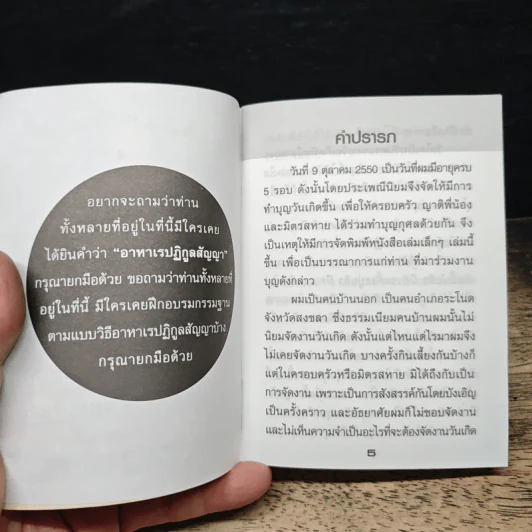 อยากจะถามว่าท่าน
ทั้งหลายที่อยู่ในที่นี้มีใครเคย
ได้ยินคำว่า “อาหาเรปฏิกูลสัญญา”
กรุณายกมือด้วย ขอถามว่าท่านทั้งหลายที่
อยู่ในที่นี้ มีใครเคยฝึกอบรมกรรมฐาน
ตามแบบวิธีอาหาเรปฏิกูลสัญญาบ้าง
กรุณายกมือด้วย
คำปรารภ
วันที่ 9 ตุลาคม 2550 เป็นวันที่ผมมีอายุครบ
5 รอบ ดังนั้นโดยประเพณีนิยมจึงจัดให้มีการ
ทำบุญวันเกิดขึ้น เพื่อให้ครอบครัว ญาติพี่น้อง
และมิตรสหาย ได้ร่วมทำบุญกุศลด้วยกัน จึง
เป็นเหตุให้มีการจัดพิมพ์หนังสือเล่มเล็กๆ เล่มนี้
ขึ้น เพื่อเป็นบรรณาการแก่ท่าน ที่มาร่วมงาน
บุญดังกล่าว
ผมเป็นคนบ้านนอก เป็นคนอำเภอระโนด
จังหวัดสงขลา ซึ่งธรรมเนียมคนบ้านผมนั้นไม่
นิยมจัดงานวันเกิด ดังนั้นแต่ไหนแต่ไรมาผมจึง
ไม่เคยจัดงานวันเกิด บางครั้งกินเลี้ยงกันบ้างก็
แต่ในครอบครัวหรือมิตรสหาย มิได้ถึงกับเป็น
การจัดงาน เพราะเป็นการสังสรรค์กันโดยบังเอิญ
เป็นครั้งคราว และอัธยาศัยผมก็ไม่ชอบจัดงาน
และไม่เห็นความจำเป็นอะไรที่จะต้องจัดงานวันเกิด
5